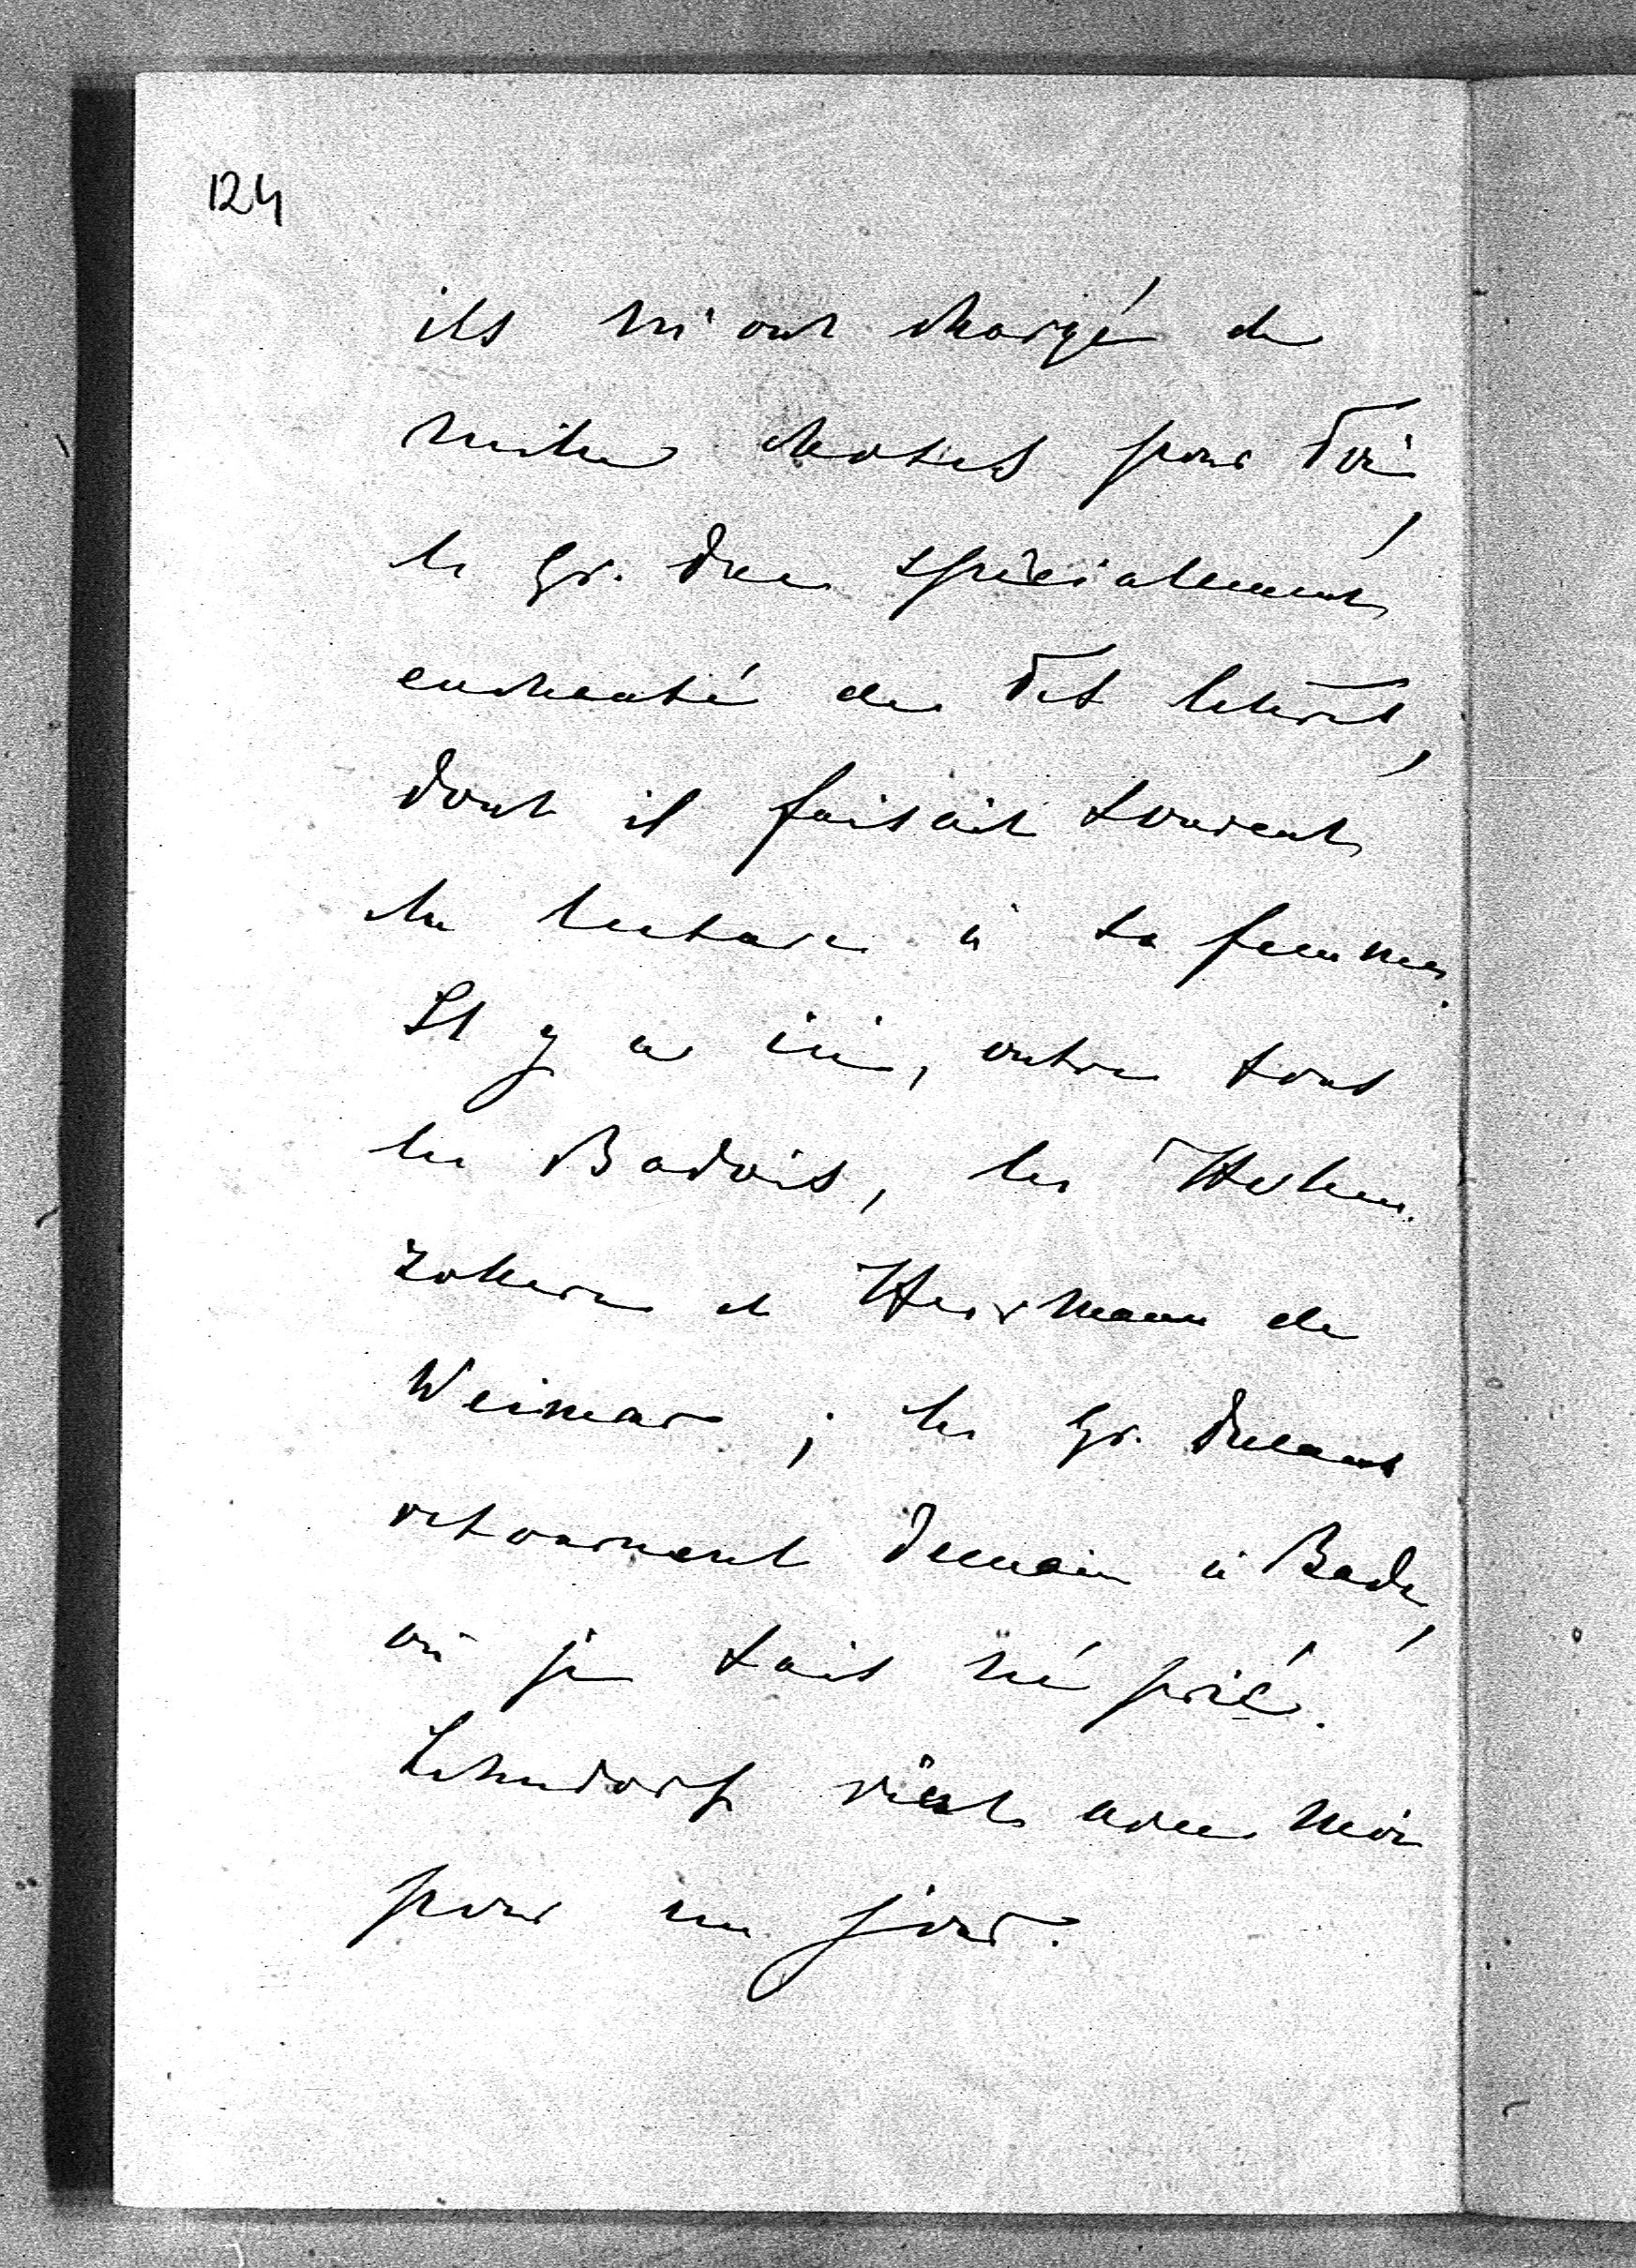 124
ils m'ont chargé de
milles choses pour Toi,
le Gr. Duc spécialement
enchanté de Tes lettres,
dont il faisait souvent
la lecture à sa femme.
Il y a ici, outre tous
les Badois, les Hohen-
zollern et Hermann de
Weimar; les Gr. Ducaux
retournent demain à Bade,
où je suis né prié.
Lehndorf vient avec moi
pour un jour.